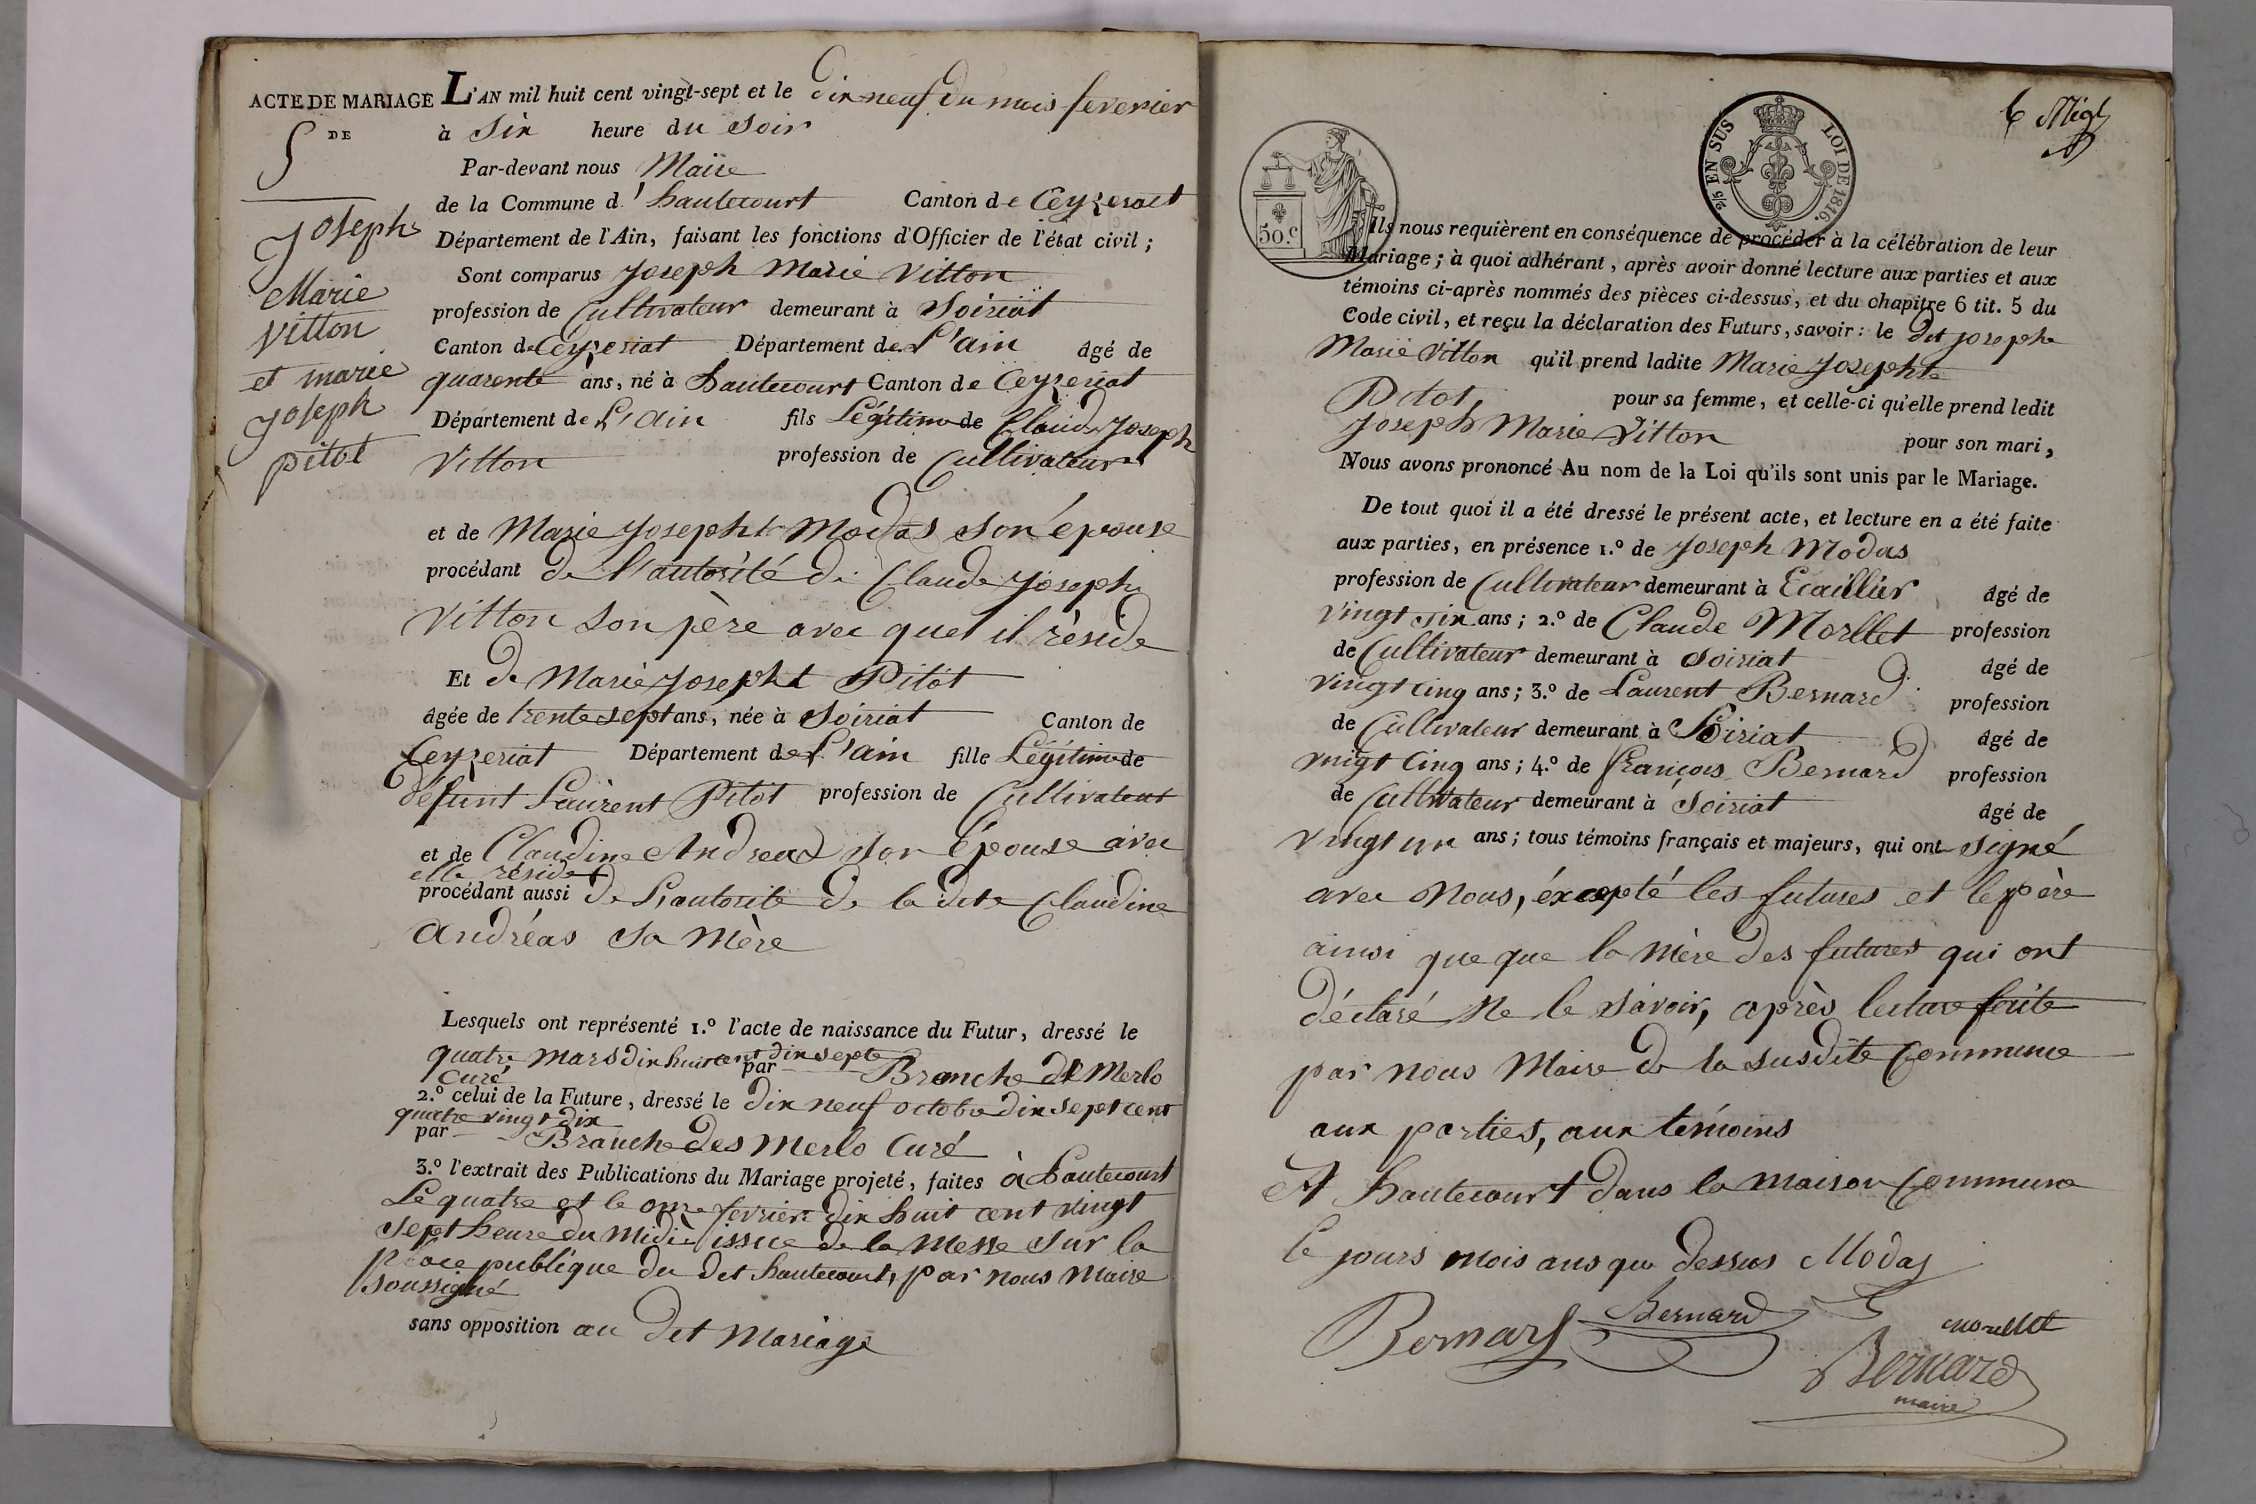 ACTE DE MARIAGE
DE
5
Joseph
Marie
Vitton
et marie
Joseph
pitot
L'AN mil huit cent vingt-sept et le dix neuf du mois feverier
à Six heure du soir
Par-devant nous Maire
de la Commune d'hautecourt Canton de Ceyzeriat
Département de l'Ain, faisant les fonctions d'Officier de l'état civil ;
Sont comparus Joseph Marie Vitton
profession de Cultivateur demeurant à Soiriat
Canton de Ceyzeriat Département de L'ain âgé de
quarente ans, né à hautecourt Canton de Ceyzeriat
Département de L'ain fils Légitime de Claude Joseph
Vitton profession de Cultivateur
et de Marie Josepht Modas son épouse
procédant de l'autorité de Claude Joseph
Vitton son père avec quel il réside
Et de Marie Josepht Pitot
âgée de trente sept ans, née à Soiriat Canton de
Ceyzeriat Département de L'ain fille Légitime de
défunt Laurent Pitot profession de Cultivateur
et de Claudine Andreas son Epouse avec
elle réside
procédant aussi de L'autorité de la dite Claudine
Andréas sa Mère
Lesquels ont représenté 1.º l'acte de naissance du Futur, dressé le
quatre mars dix huit cent dix sept par Branche de Merlo
Curé
2.º celui de la Future, dressé le dix neuf octobre dix sept cent
quatre vingt dix
par Branche des Merlo Curé
3.º l'extrait des Publications du Mariage projeté, faites à hautecourt
Le quatre et le onze fevrier dix huit cent vingt
sept heure du midi issue de la Messe sur la
place publique du dit hautecourt, par nous Maire
soussigné
sans opposition au dit mariage
5o.c
2/5 EN SUS
LOI DE 1816.
6
Ils nous requièrent en conséquence de procéder à la célébration de leur
Mariage ; à quoi adhérant, après avoir donné lecture aux parties et aux
témoins ci-après nommés des pièces ci-dessus, et du chapitre 6 tit. 5 du
Code civil, et reçu la déclaration des Futurs, savoir : le dit joseph
Marie Vitton qu'il prend ladite Marie Josephte
Pitot pour sa femme, et celle-ci qu'elle prend ledit
Joseph Marie Vitton pour son mari,
Nous avons prononcé Au nom de la Loi qu'ils sont unis par le Mariage.
De tout quoi il a été dressé le présent acte, et lecture en a été faite
aux parties, en présence 1.º de Joseph Modas
profession de Cultivateur demeurant à Ecaillier âgé de
vingt six ans ; 2.º de Claude Morllet profession
de Cultivateur demeurant à Soiriat âgé de
vingt cinq ans ; 3.º de Laurent Bernard profession
de Cultivateur demeurant à Soiriat âgé de
vingt cinq ans ; 4.º de françois Bernard profession
de Cultivateur demeurant à Soiriat âgé de
vingt un ans ; tous témoins français et majeurs, qui ont signé
avec Nous, éxcepté les futures et le père
ainsi que que la mère des futures qui ont
déclaré Ne le savoir, après lecture faite
par nous Maire de la susdite Commune
aux parties, aux témoins
A hautecourt dans la maison Commune
le jours mois ans que dessus Modas
Bernard Bernard
morellet
Bernard
maire